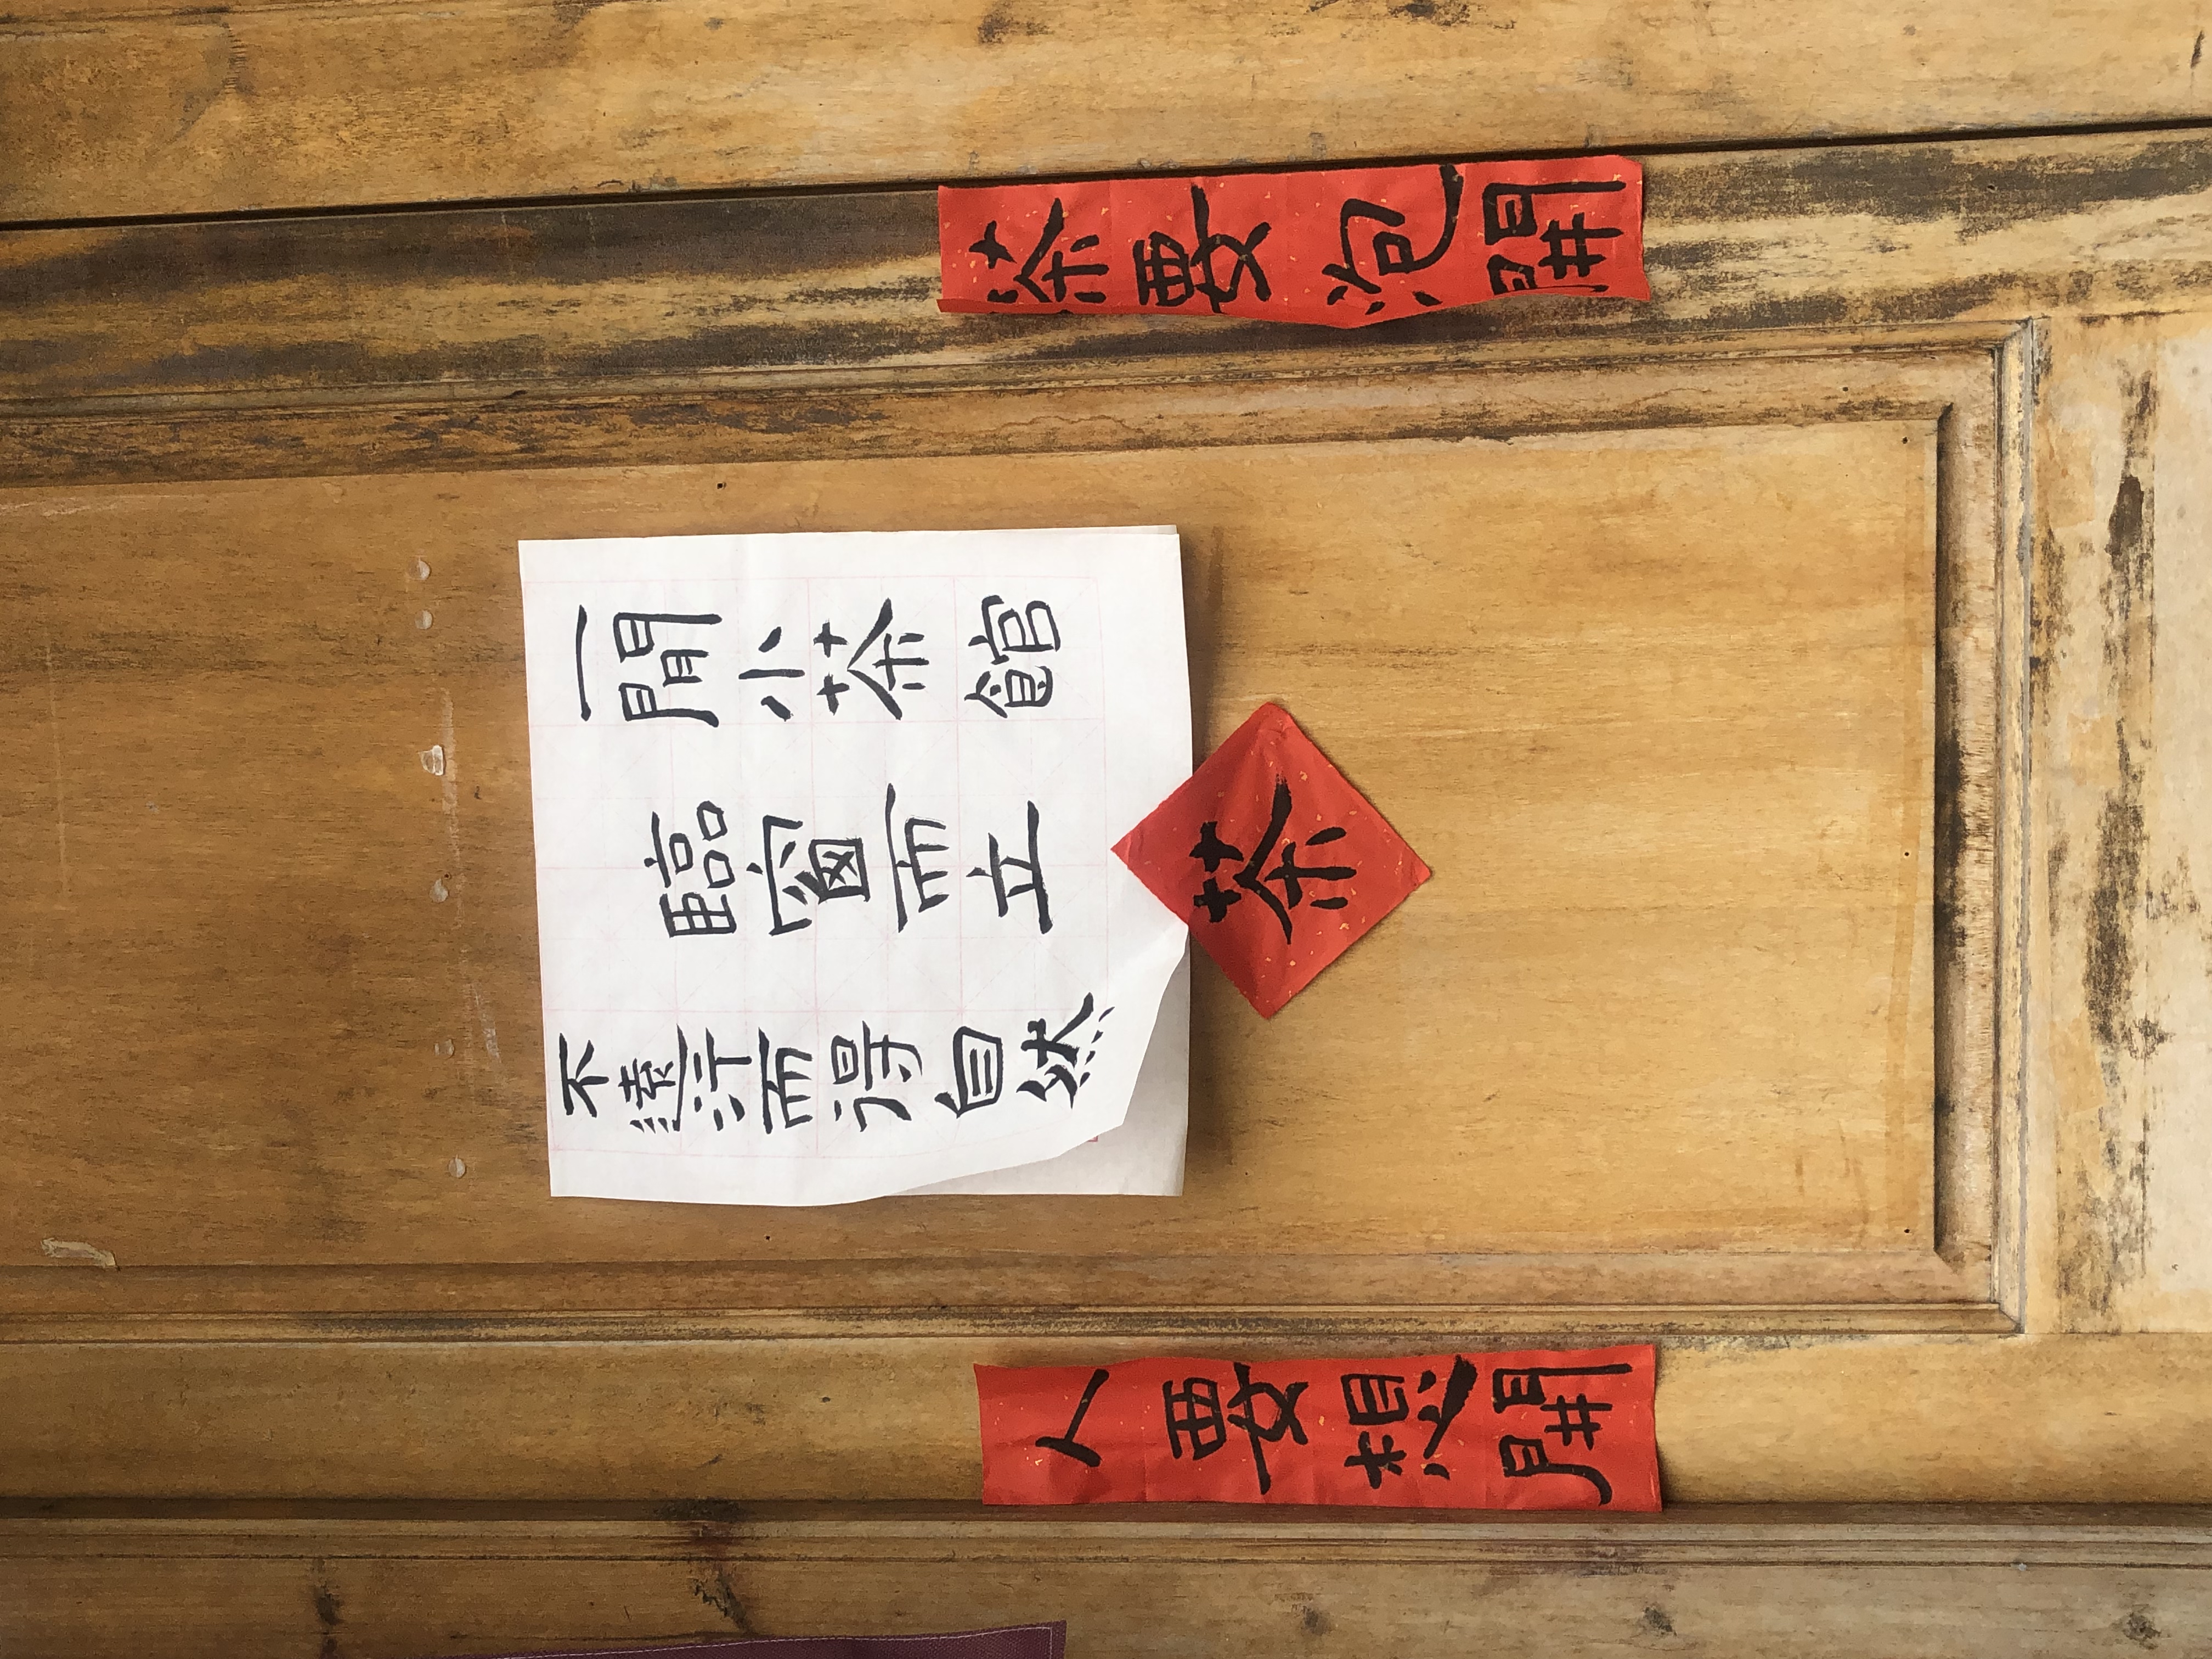 茶要泡開
一間小茶館
臨窗而立
不遠行而得自然
茶
人要想開